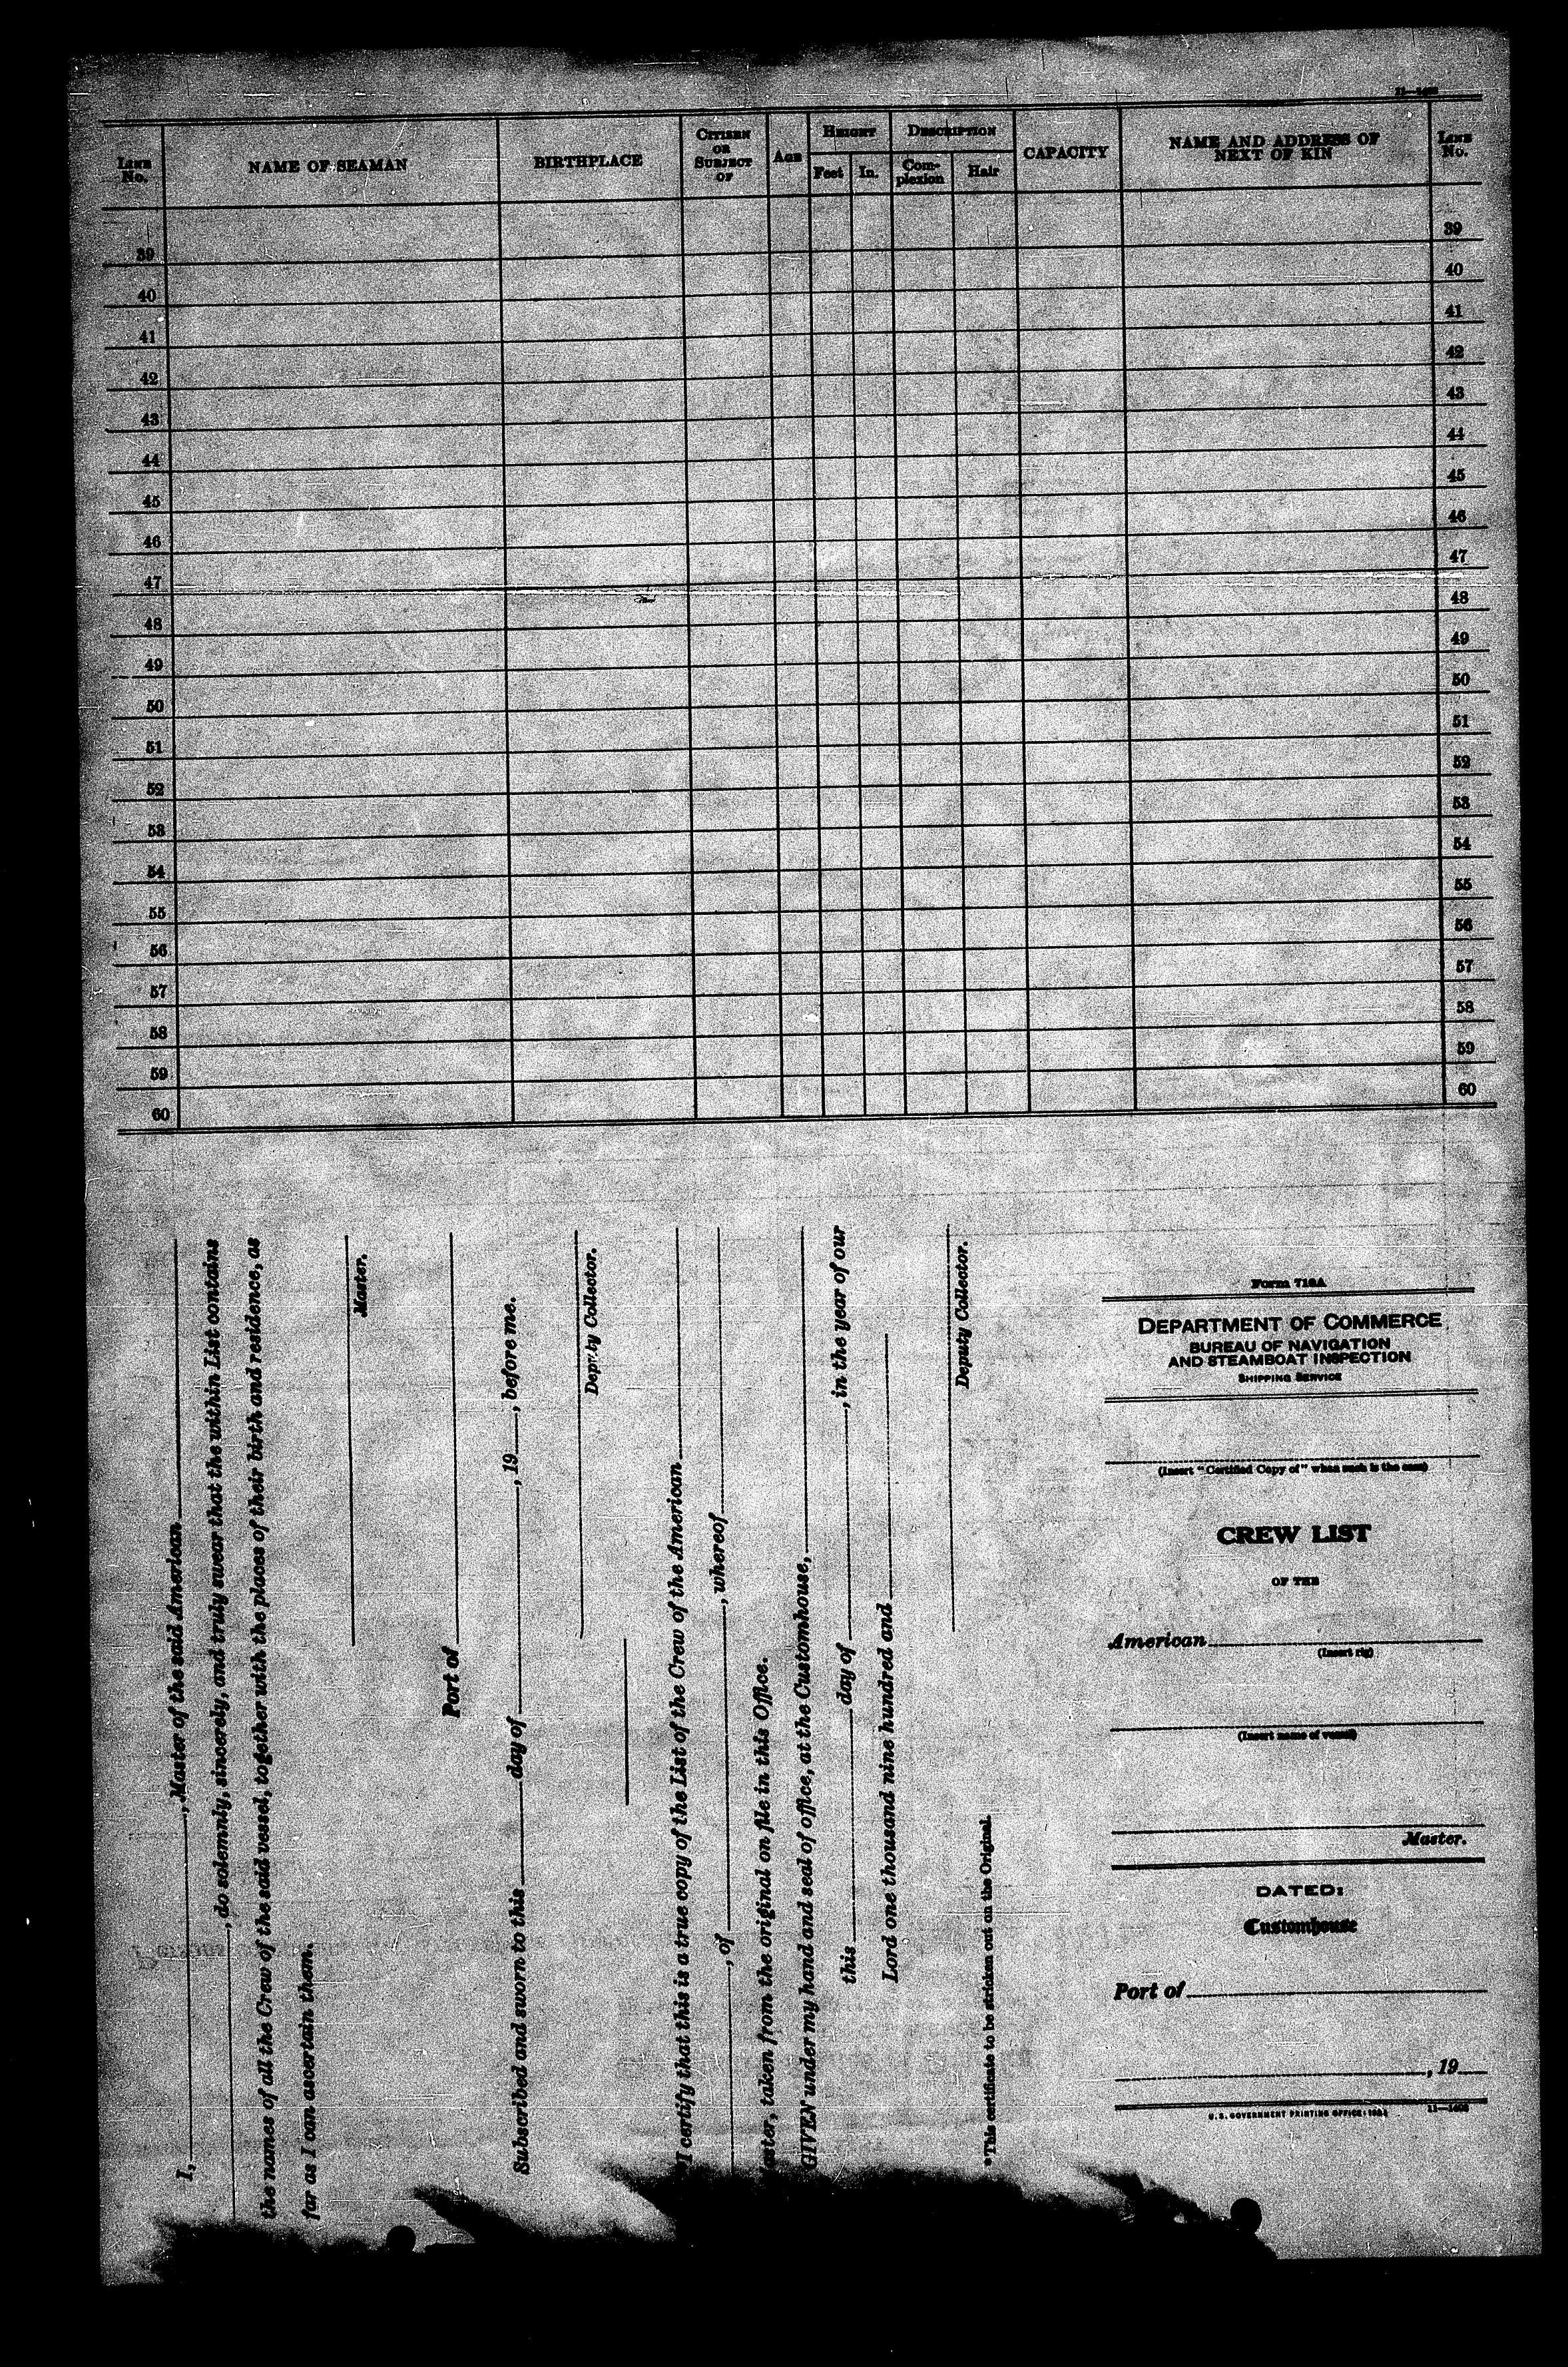 11—1406
LINE No. NAME OF SEAMAN BIRTHPLACE CITIZEN OR SUBJECT OF AGE HEIGHT Feet In. DESCRIPTION Complexion Hair CAPACITY NAME AND ADDRESS OF NEXT OF KIN LINE No.
39 39
40 40
41 41
42 42
43 43
44 44
45 45
46 46
47 47
48 48
49 49
50 50
51 51
52 52
53 53
54 54
55 55
56 56
57 57
58 58
59 59
60 60
I, , Master of the said American
, do solemnly, sincerely, and truly swear that the within List contains
the names of all the Crew of the said vessel, together with the places of their birth and residence, as
far as I can ascertain them.
Master.
Port of
Subscribed and sworn to this day of , 19 , before me.
Deputy Collector.
*I certify that this is a true copy of the List of the Crew of the American
, of , whereof
Master, taken from the original on file in this Office.
GIVEN under my hand and seal of office, at the Customhouse,
this day of , in the year of our
Lord one thousand nine hundred and
Deputy Collector.
*This certificate to be stricken out on the Original.
Form 710A
DEPARTMENT OF COMMERCE
BUREAU OF NAVIGATION
AND STEAMBOAT INSPECTION
SHIPPING SERVICE
(Insert "Certified Copy of" when such is the case)
CREW LIST
OF THE
American
(Insert rig)
(Insert name of vessel)
Master.
DATED:
Customhouse
Port of
, 19
U.S. GOVERNMENT PRINTING OFFICE: 11—1406